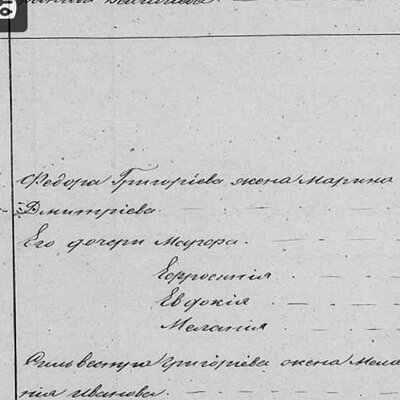 Федора Григоріева жена Марина
Дмитріева.
Его дочери
Ефросинія
Евдокія
Меланія
Сильвестра Григоріева жена Мела
нія Иванова.